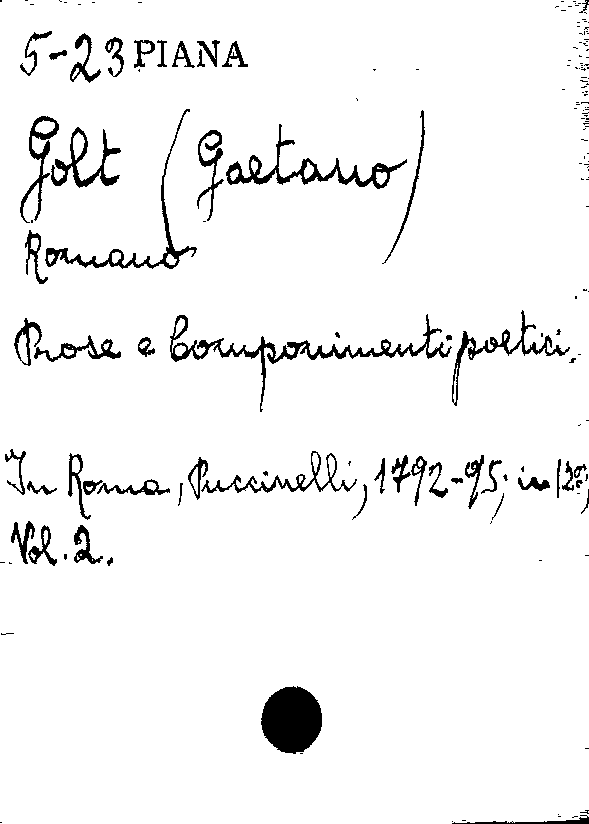 5-23 PIANA
Golt (Gaetano)
Romano
Prose e Componimenti poetici.
In Roma, Puccinelli, 1792-95; in 12º,
Vol. 2.